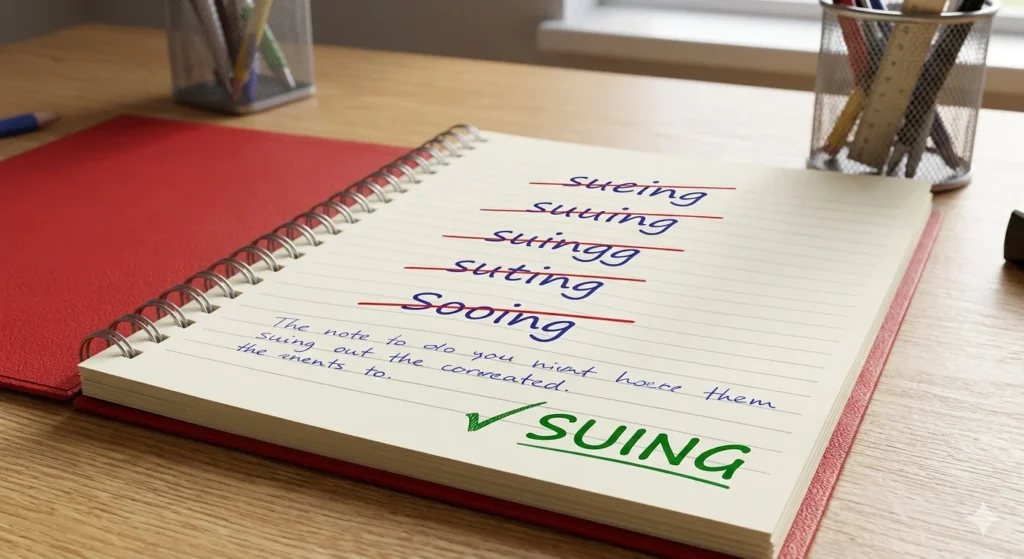 sueing
suuing
suingg
suting
Sooing
The note to do you might hoese them
suing out the correated.
the enents to.
✓ SUING